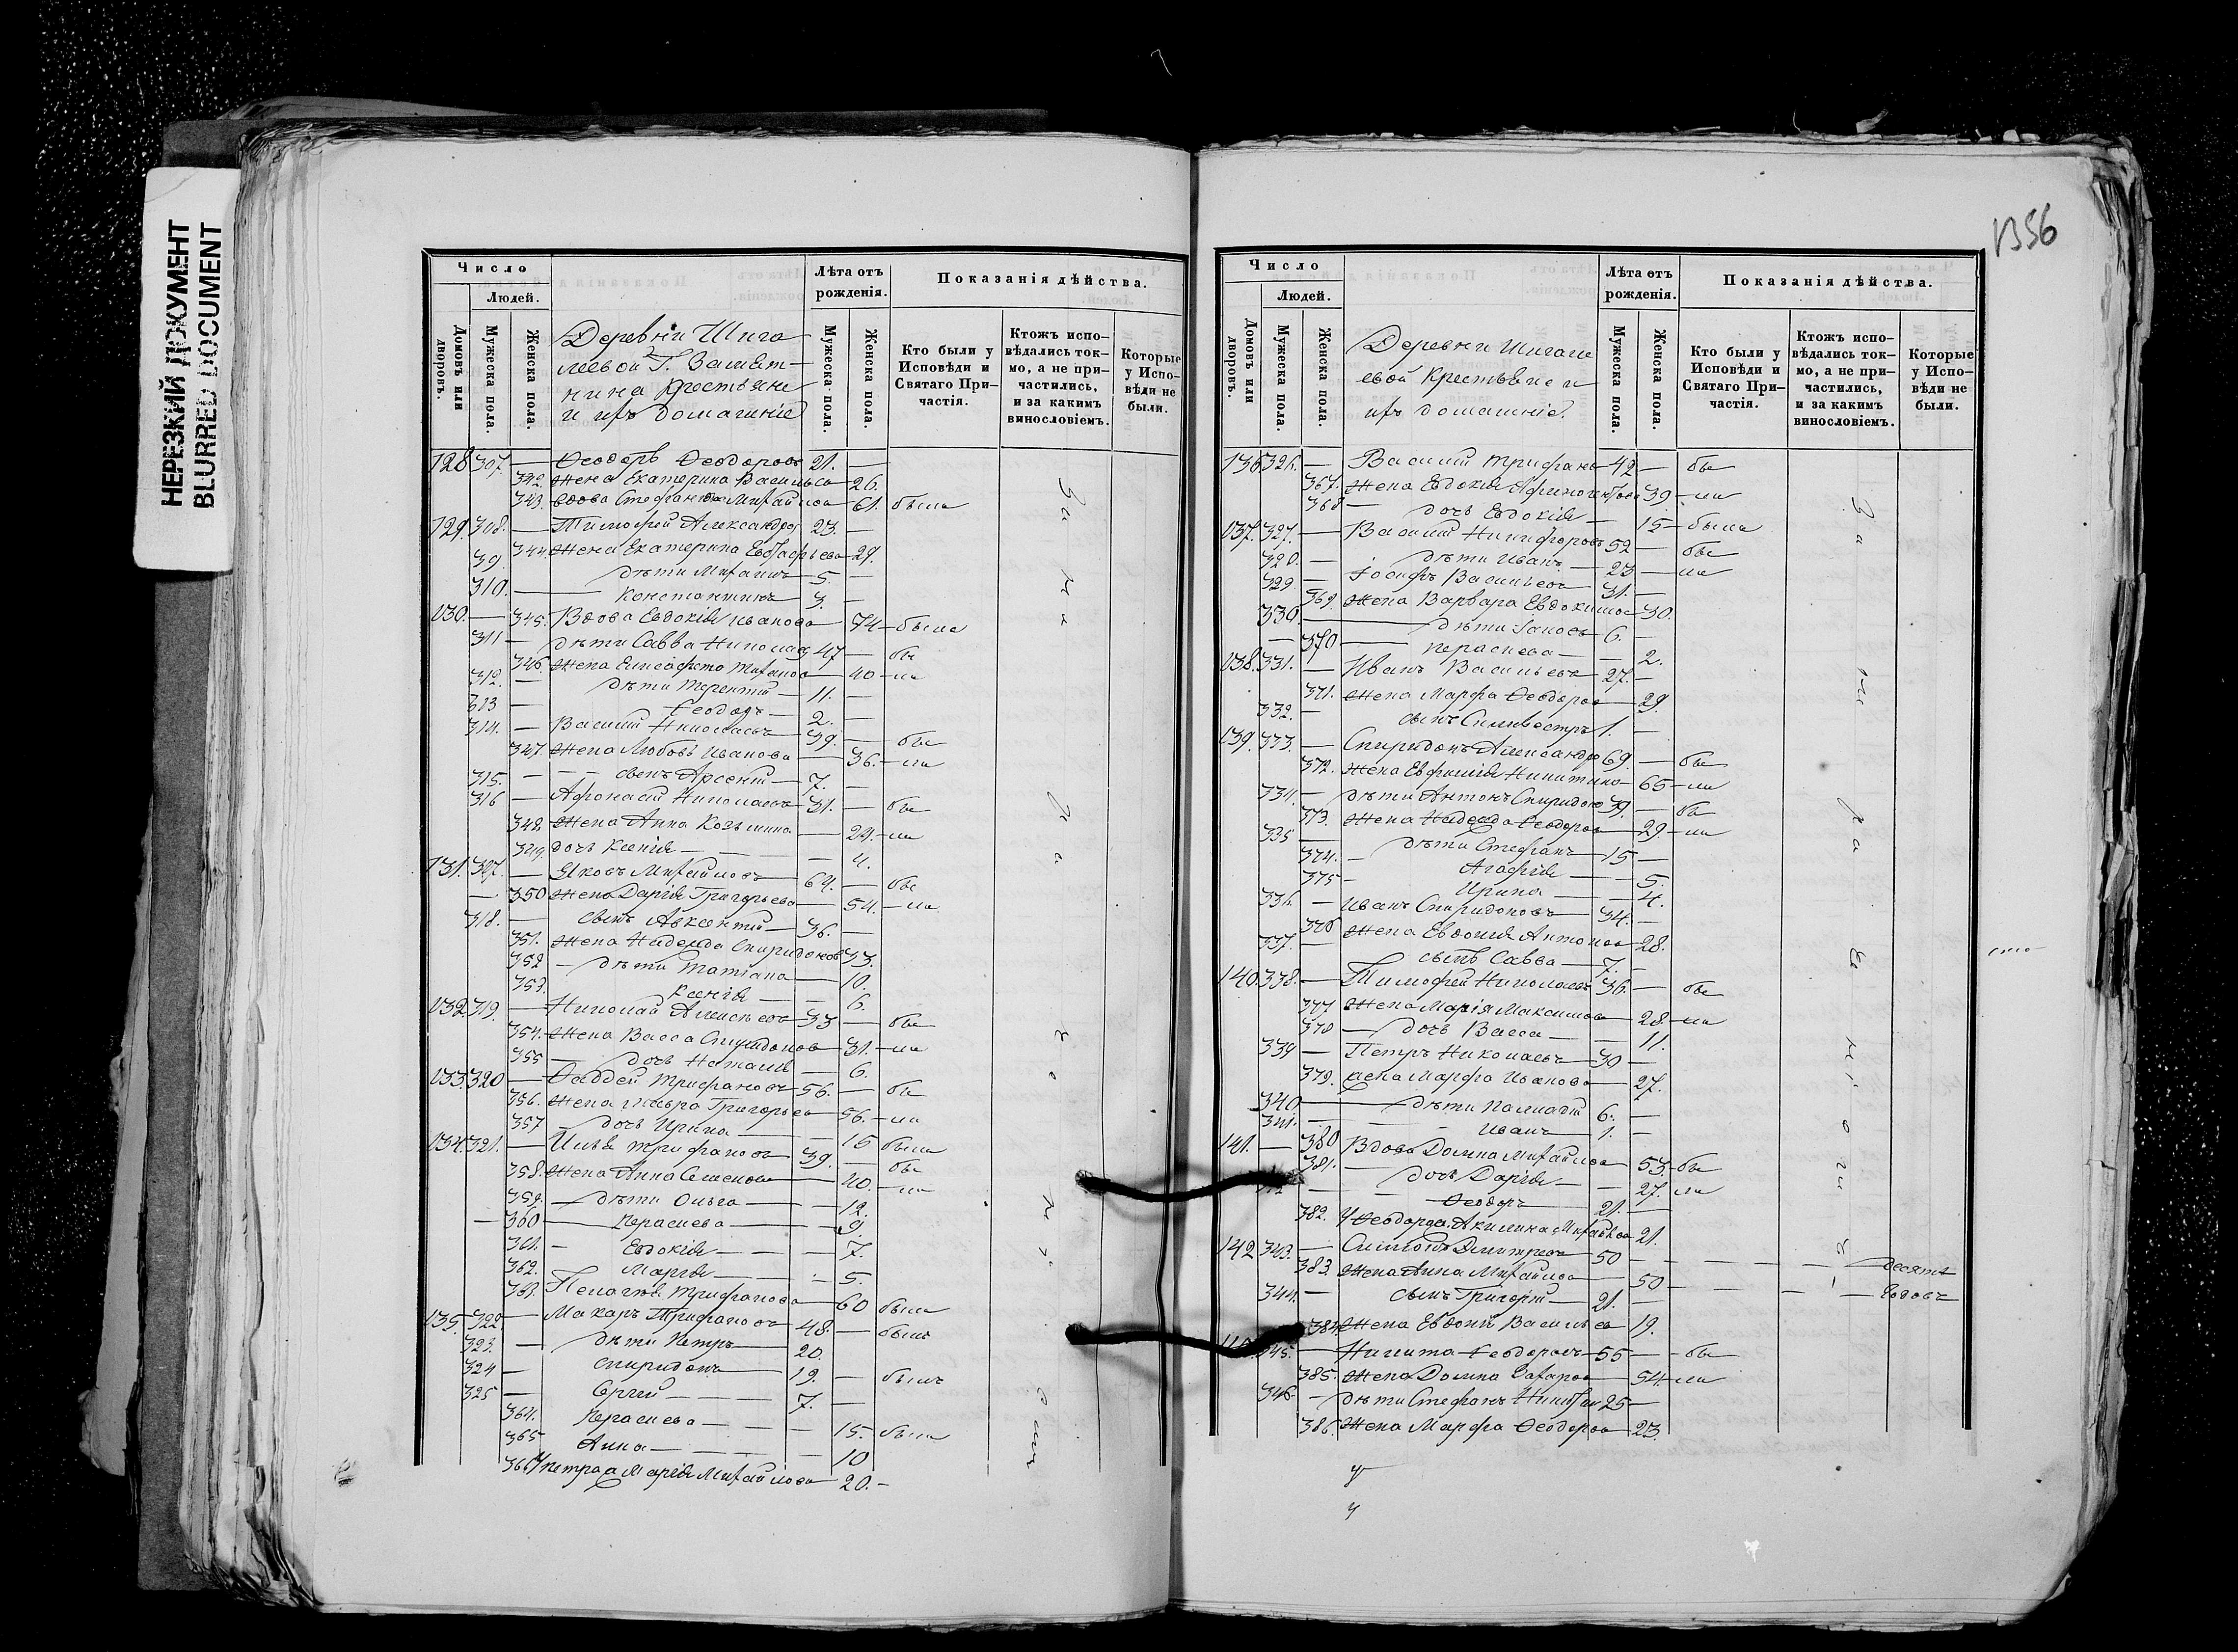 НЕРЕЗКИЙ ДОКУМЕНТ
BLURRED DOCUMENT
Число
Людей.
Домовъ или дворовъ.
Мужеска пола.
Женска пола.
Деревни Шига
левой Г. Замят-
нина крестьяне
и ихъ домашніе
Лѣта отъ рожденія.
Мужеска пола.
Женска пола.
Показанія дѣйства.
Кто были у Исповѣди и Святаго При-частія.
Ктожъ испо-вѣдались ток-мо, а не при-частились, и за какимъ винословіемъ.
Которые у Испо-вѣди не были.
128 307. — Ѳеодоръ Ѳеодоровъ 21. —
342. Жена Екатерина Васильева 26.
343. вдова Стефанида Михайлова 61. была
129. 308. — Тимоѳей Александровъ 23. —
344. Жена Екатерина 29.
39. дѣти Михаилъ 5. —
310. — Константинъ 3. —
130. — 345. Вдова Евдокія Иванова — 74 — была
311 — дѣти Савва Николаевъ 47 — бы
346. Жена Елисавета — 40 — ли
312. — дѣти Терентій — 11. —
313 — Ѳеодоръ 2. —
314. — Василій Николаевъ 39. — бы
347. Жена Любовь Иванова — 36. — ли
315. — сынъ Арсеній — 7. —
316 — Афонасій Николаевъ 31. — бы
348. Жена Анна Козьмина — 24. — ли
349. дочь Ксенія — 4.
131. 317. — Яковъ Михайловъ 64. — бы
— 350 Жена Дарія Григорьева — 54. — ли
318. — сынъ Авксентій — 36. —
351. Жена Надежда Спиридонова 33.
352 — дѣти Татіана — 10.
353. Ксенія — 6.
132. 319. — Николай Алексѣевъ 33 — бы
354. Жена Васса Спиридонова 31. — ли
355 — дочь Наталія — 6.
133. 320 — Ѳаддей Трифановъ 56. — бы
356. Жена Григорьева 56. — ли
357 — дочь Ирина — 15 была
134. 321. — Илья Трифановъ 39. — бы
358. Жена Анна Семенова — 40. — ли
359. — дѣти Ольга — 12.
— 360 — Параскева — 9.
361. — Евдокія — 7.
362. Марія — 5.
363. Пелагія Трифанова — 60 была
135. 322 — Макаръ Трифановъ 48. — былъ
323. — дѣти Петръ 20.
324 — Спиридонъ 19. — былъ
325 — Сргей — 7. —
364. Параскева — 15. была
365 Анна — 10
366 У Петра ж Марія Михайлова 20. —
За
ма
1356
Число
Людей.
Домовъ или дворовъ.
Мужеска пола.
Женска пола.
Деревни Шигале
евой крестьяне и
ихъ домашніе.
Лѣта отъ рожденія.
Мужеска пола.
Женска пола.
Показанія дѣйства.
Кто были у Исповѣди и Святаго При-частія.
Ктожъ испо-вѣдались ток-мо, а не при-частились, и за какимъ винословіемъ.
Которые у Испо-вѣди не были.
136 326. — Василій Трифановъ 42 — бы
367. Жена Евдокія 39 — ли
368 — дочь Евдокія — 15 — была
137. 327. — Василій Никифоровъ 52 — бы
328. — дѣти Иванъ 23 — ли
329 — Іосифъ Васильевъ 31. —
369. Жена Варвара Евдокимова 30.
330. — дѣти Іаковъ 6. —
— 370 — Параскева — 2.
138. 331. — Иванъ Васильевъ 27. —
371. Жена Марфа Ѳеодорова 29.
332. — сынъ Силивестръ 1. —
139. 333. — Спиридонъ Александровъ 69 — бы
372. Жена Евфимія Никитина 65 — ли
334. — дѣти Антонъ Спиридоновъ 39. — бы
373. Жена Надежда Ѳеодорова — 29. — ли
335 — дѣти Стефанъ 15 —
374. — Агафія — 5.
375 — Ирина — 4.
336. — Иванъ Спиридоновъ 34. —
376 Жена Евдокія Антонова 28.
337. — сынъ Савва — 7. —
140. 338. — Тимоѳей Николаевъ 36. — бы
377 Жена Марія Максимова 28 — ли
378 — дочь Васса — 11.
339 — Петръ Николаевъ 30 —
379. жена Марфа Иванова — 27.
340. — дѣти 6. —
341. — Иванъ 1. —
141. — 380 Вдова Домна Михайлова 53. бы
381. — дочь Дарія — 27. ли
— Ѳеодоръ 21. —
382. У Ѳеодора ж. Акилина Михайлова 21.
142 343. — Симіонъ Дмитріевъ 50 —
383. Жена Анна Михайлова — 50 —
344. — сынъ Григорій — 21. —
384 Жена Евдокія Васильева 19.
345. — Никита Ѳеодоровъ 55 — бы
385. Жена Домна Захарова 54 — ли
346 — дѣти Стефанъ Никитинъ 25 —
386. Жена Марфа Ѳеодорова 23.
За